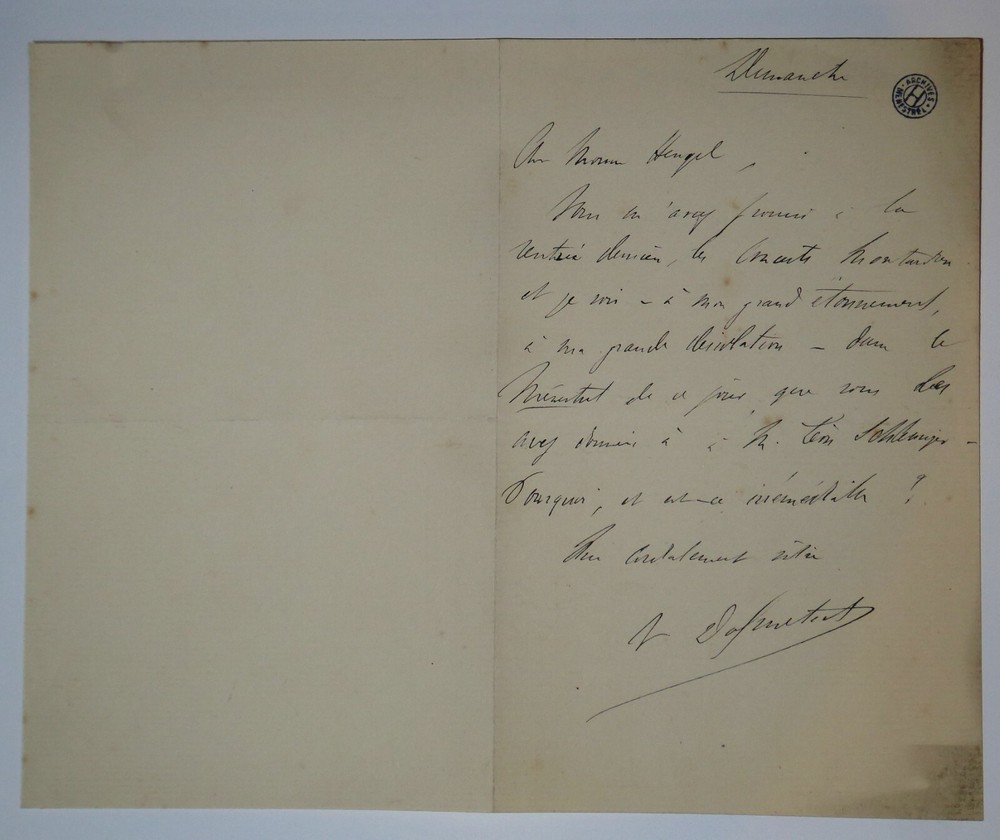 Dimanche
ARCHIVES MENESTREL
H
Heugel,
Vous m'avez promis à la
rentrée dernière, les Concerts
et je vois – à mon grand étonnement,
à ma grande désolation – dans le
Ménestrel de ce jour que vous les
avez donnés à à M. Léon Schlesinger –
Pourquoi, et est-ce irrémédiable ?
Bien cordialement vôtre